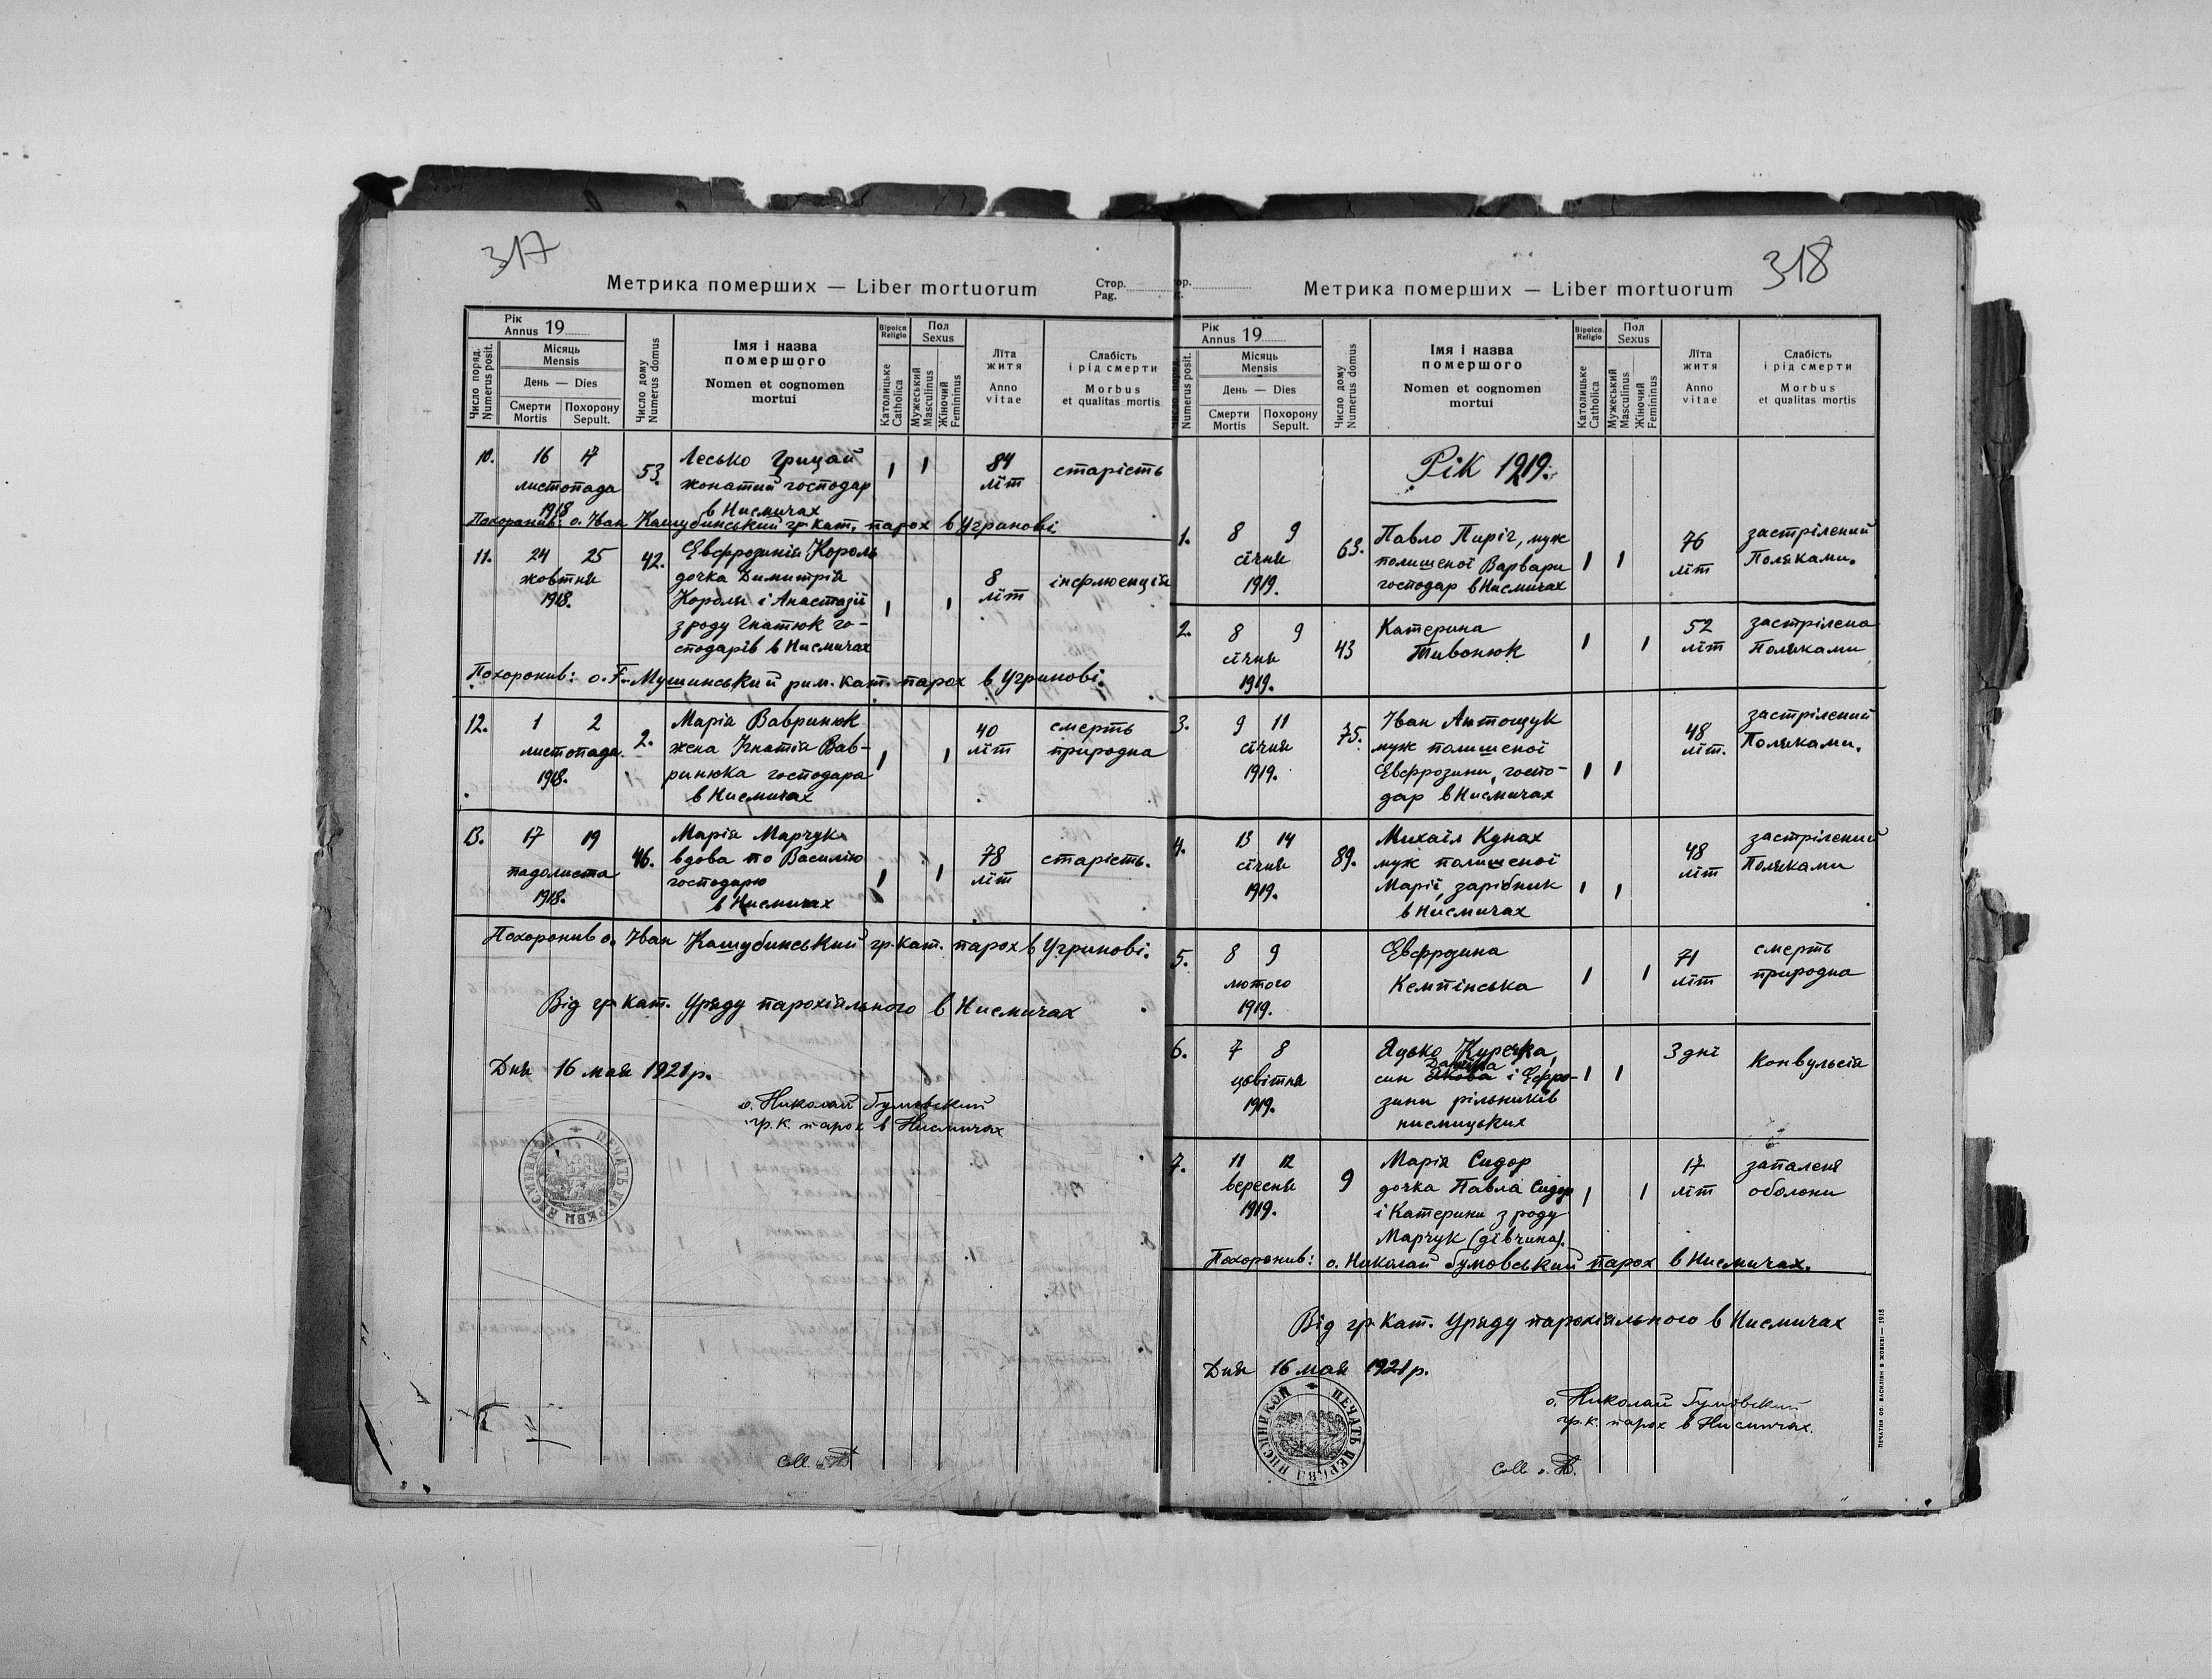 317
Метрика померших — Liber mortuorum
Стор.
Pag.
Рік
Annus 19
Число поряд.
Numerus posit.
Місяць
Mensis
День — Dies
Смерти
Mortis
Похорону
Sepult.
Число дому
Numerus domus
Імя і назва
помершого
Nomen et cognomen
mortui
Віроісп.
Religio
Католицьке
Catholica
Пол
Sexus
Мужеський
Masculinus
Жіночий
Femininus
Літа
житя
Anno
vitae
Слабість
і рід смерти
Morbus
et qualitas mortis
10. 16 17 листопада 1918 53. Лесько Грицай
жонатий господар
в Нисмичах
84 літ старість
Похоронив: о. Іван Кашубинський гр. кат. парох в Угринові
11. 24 25 жовтня 1918. 42. Евфрозинія Король
дочка Димитрія
Короля і Анастазії
з роду Гнатюк го-
сподарів в Нисмичах
8 літ інфлюенція
Похоронив: о. F. Мушинський рим. кат. парох в Угринові.
12. 1 2 листопада 1918. 2. Марія Вавринюк
жена Ігнатія Вав-
ринюка господара
в Нисмичах
40 літ смерть природна
13. 17 19 падолиста 1918. 46. Марія Марчук
вдова по Василію
господарю
в Нисмичах
78 літ старість.
Похоронив о. Іван Кашубинський гр. кат. парох в Угринові.
Від гр. кат. Уряду парохіяльного в Нисмичах
Дня 16 мая 1921 р.
о. Николай Бумовский
гр. к. парох в Нисмичах
ПЕЧАТЬ ЦЕРКВИ НИСМИЦКОЙ
Coll.
318
Метрика померших — Liber mortuorum
Рік
Annus 19
Numerus posit.
Місяць
Mensis
День — Dies
Смерти
Mortis
Похорону
Sepult.
Число дому
Numerus domus
Імя і назва
помершого
Nomen et cognomen
mortui
Віроісп.
Religio
Католицьке
Catholica
Пол
Sexus
Мужеський
Masculinus
Жіночий
Femininus
Літа
житя
Anno
vitae
Слабість
і рід смерти
Morbus
et qualitas mortis
Рік 1919.
1. 8 9 січня 1919. 63. Павло Пиріг, муж
полишеної Варвари
господар в Нисмичах
76 літ застрілений Поляками.
2. 8 9 січня 1919. 43 Катерина
Тивонюк
52 літ застрілена Поляками
3. 9 11 січня 1919. 75. Іван Антощук
муж полишеної
Евфрозини, госпо-
дар в Нисмичах
48 літ. застрілений Поляками.
4. 13 14 січня 1919. 89. Михаїл Кунах
муж полишеної
Марії, зарібник
в Нисмичах
48 літ застрілений Поляками
5. 8 9 лютого 1919. Евфрдина
Кемпінська
71 літ смерть природна
6. 7 8 цвітня 1919. Яцько Куречка,
син Якова Данила і Ефро-
зини рільників
нисмицьких
3 дні Конвульсія
7. 11 12 вересня 1919. 9 Марія Сидор
дочка Павла Сидор
і Катерини з роду
Марчук (дівчина).
17 літ запаленя оболони
Похоронив: о. Николай Бумовський парох в Нисмичах.
Від гр. кат. Уряду парохіяльного в Нисмичах
Дня 16 мая 1921 р.
о. Николай Бумовский
гр. к. парох в Нисмичах.
ПЕЧАТЬ ЦЕРКВИ НИСМИЦКОЙ
Coll.
ПЕЧАТНЯ ОО. ВАСИЛІЯН В ЖОВКВІ — 1918